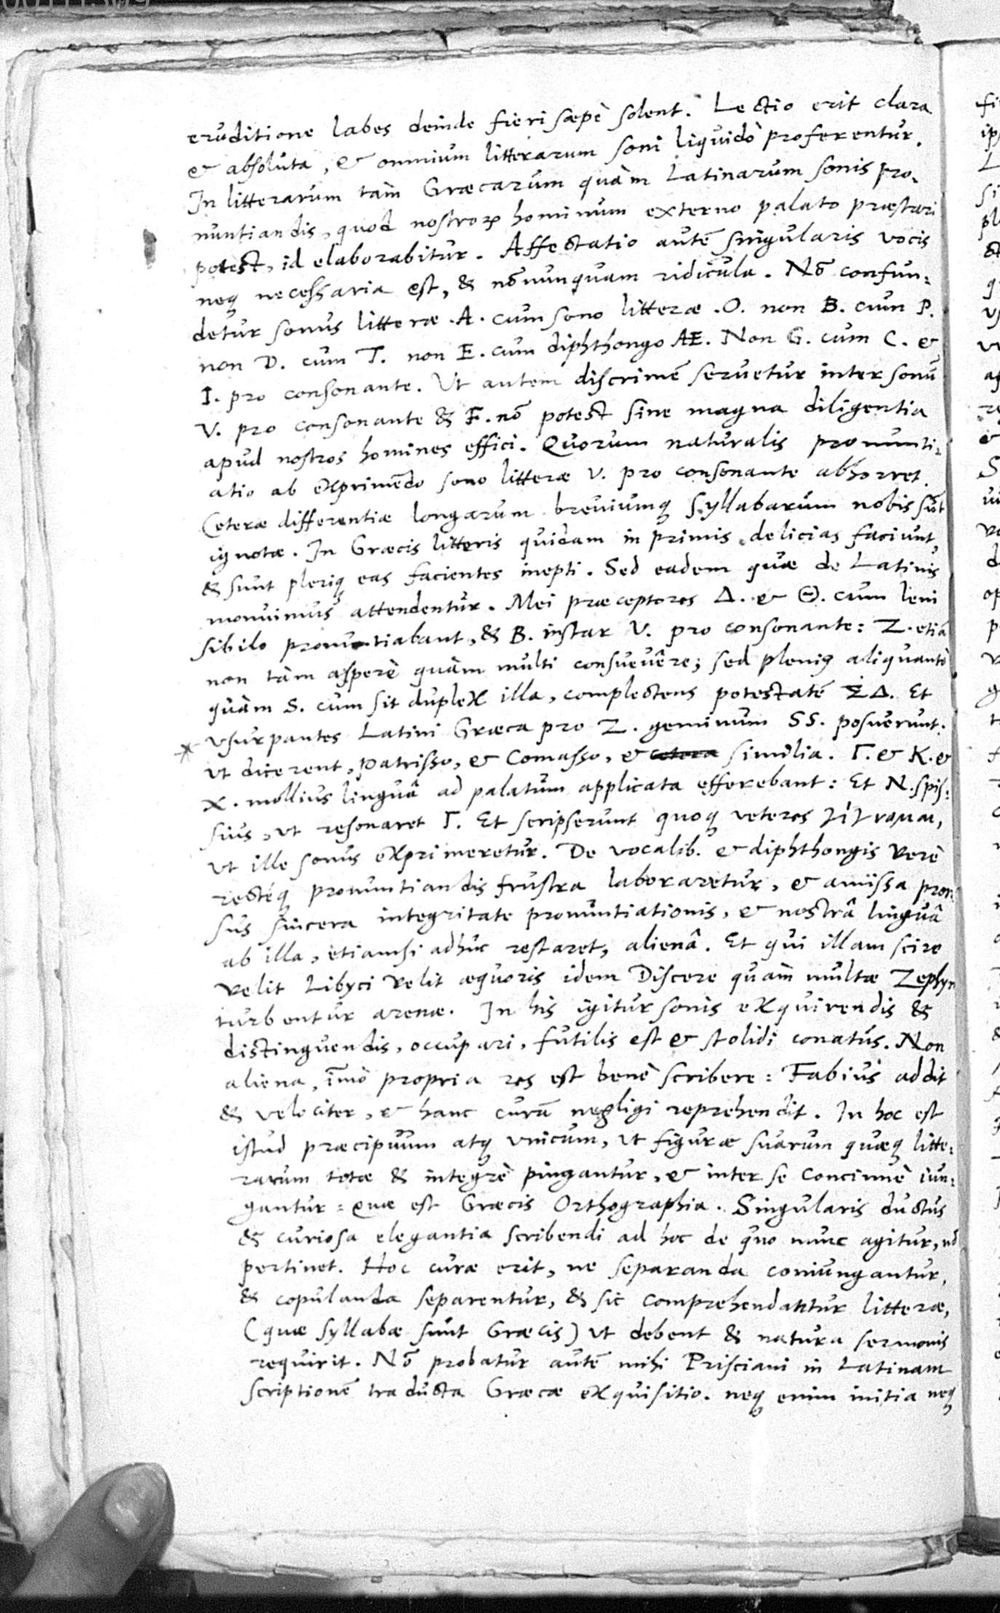 eruditione labes deinde fieri sæpè solent. Lectio erit clara
& absoluta, & omnium litterarum soni liquidò proferentur.
In litterarum tàm Græcarum quàm Latinarum sonis pro-
nuntiandis, quod nostroꝝ hominum externo palato præstari
potest, id elaborabitur. Affectatio autē singularis vocis
neq; necessaria est, & nōnunquam ridicula. Nō confun-
detur sonus litteræ A. cum sono litteræ .O. non B. cum P.
non D. cum T. non E. cum diphthongo Æ. Non G. cum C. &
I. pro consonante. Ut autem discrimē seruetur inter sonū
V. pro consonante & F. nō potest sine magna diligentia
apud nostros homines effici. Quorum naturalis pronunti-
atio ab exprimēdo sono litteræ V. pro consonante abhorret.
Ceteræ differentiæ longarum breviumq; syllabarum nobis sūt
ignotæ. In Græcis litteris quidam in primis delicias faciunt,
& sunt pleriq; eas facientes inepti. Sed eadem quæ de Latinis
monuimus attendentur. Mei præceptores Δ. & Θ. cum leni
sibilo pronuntiabant, & B. instar V. pro consonante: Z. etiā
non tàm asperè quàm multi consuevêre; sed pleniꝰ aliquantò
quàm S. cum sit duplex illa, complectens potestatē ΣΔ. Et
vsurpantes Latini Græca pro Z. geminum SS. posuerunt.
ut dicerent, Patrisso, & Comasso, & similia. Γ. & K. &
X. mollius linguâ ad palatum applicata efferebant: Et N. spis-
sius, ut resonaret Γ. Et scripserunt quoq; veteres
ut ille sonus exprimeretur. De vocalib. & diphthongis verè
rectéq; pronuntiandis frustra laboraretur, & amissa pror-
sus sincera integritate pronuntiationis, & nostrâ linguâ
ab illa, etiamsi adhuc restaret, alienâ. Et qui illam scire
velit Libyci velit æquoris idem Discere quàm multæ Zephyro
turbentur arenæ. In his igitur sonis exquirendis &
distinguendis, occupari, futilis est & stolidi conatus. Non
aliena, īmò propria res est benè scribere: Fabius addit
& velociter, & hanc curā negligi reprehendit. In hoc est
istud præcipuum atq; vnicum, ut figuræ suarum quæq; litte-
rarum totæ & integrè pingantur, & inter se concinnè iun-
gantur: quæ est Græcis Orthographia. Singularis ductus
& curiosa elegantia scribendi ad hoc de quo nunc agitur, nō
pertinet. Hoc curæ erit, ne separanda coniungantur,
& copulanda separentur, & sic comprehendantur litteræ,
(quæ syllabæ sunt Græcis) ut debent & natura sermonis
requirit. Nō probatur autē mihi Prisciani in Latinam
scriptionē traducta Græcæ exquisitio. neq; enim initia neq;